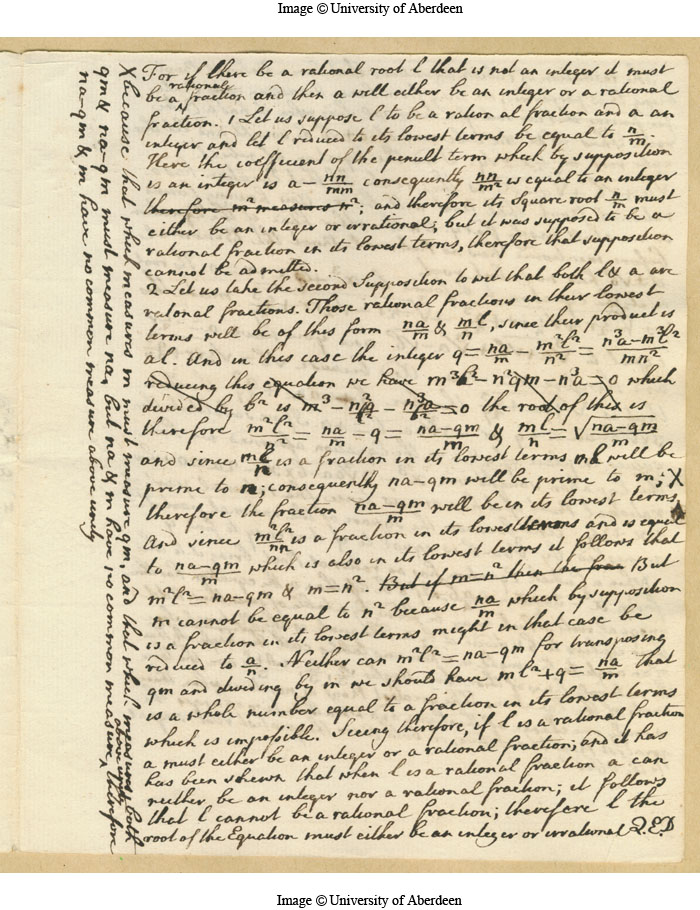 Image © University of Aberdeen
For if there be a rational root l that is not an integer it must
be a rational fraction and then a will either be an integer or a rational
fraction. 1 Let us suppose l to be a rational fraction and a an
integer and let l reduced to its lowest terms be equal to n/m.
Here the coefficient of the penult term which by supposition
is an integer is a − nn/mm consequently nn/m² is equal to an integer
therefore m² measures n²; and therefore its Square root n/m must
either be an integer or irrational; but it was supposed to be a
rational fraction in its lowest terms, therefore that supposition
cannot be admitted.
2 Let us take the second Supposition to wit that both l & a are
rational fractions. Those rational fractions in their lowest
terms will be of this form na/m & ml/n, since their product is
al. And in this case the integer q = na/m − m²l²/n² = n³a−m³l²/mn²
reducing this equation we have m³l² − n²qm − n³a = 0 which
divided by b² is m³ − n²q/b² − n³a/b² = 0 the root of this is
therefore m²l²/n² = na/m − q = na−qm/m & ml/n = √na−qm/m
and since ml/n is a fraction in its lowest terms ml will be
prime to n; consequently na−qm will be prime to m; X
therefore the fraction na−qm/m will be in its lowest terms,
And since m²l²/nn is a fraction in its lowest terms and is equal
to na−qm/m which is also in its lowest terms it follows that
m²l² = na−qm & m = n². But if m = n² then the frac But
m cannot be equal to n² because na/m which by supposition
is a fraction in its lowest terms might in that case be
reduced to a/n. Neither can m²l² = na−qm for transposing
qm and dividing by m we should have ml² + q = na/m that
is a whole number equal to a fraction in its lowest terms
which is impossible. Seeing therefore, if l is a rational fraction
a must either be an integer or a rational fraction; and it has
has been shewn that when l is a rational fraction a can
neither be an integer nor a rational fraction; it follows
that l cannot be a rational fraction; therefore l the
root of the Equation must either be an integer or irrational Q.E.D
X because that which measures m must measure qm, and that which measures both
qm & na−qm must measure na, but na & m have no common measure above unity, therefore
na−qm & m have no common measure above unity
Image © University of Aberdeen